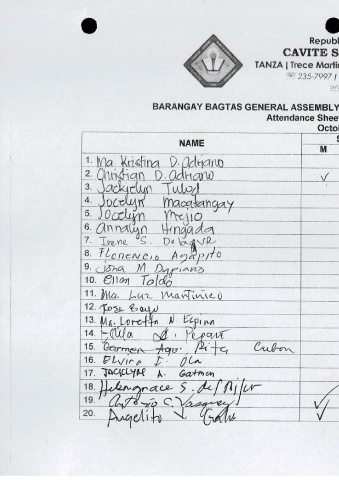 Republ
CAVITE S
TANZA | Trece Marti
235-7997 |
BARANGAY BAGTAS GENERAL ASSEMBLY
Attendance Sheet
Octob
NAME
M
1. Ma. Kristina D. Adriano
2. Christian D. Adriano
3. Jackyelyn Tulod
4. Jocelyn Macatangay
5. Jocelyn Mejio
6. Annalyn Hingada
7. Irene S.
8. Florencio Agapito
9. Jona M
10. Ellan Toldo
11. Ma. Luz Martinico
12. Rose
13. Ma. Loretta N. Espina
14.
15. Carmen
16. Elvira E. Ola
17. Jacklyne A. Gatmen
18. Helengrace S. del
19. Antonio C. Vasquez
20. Angelito V.